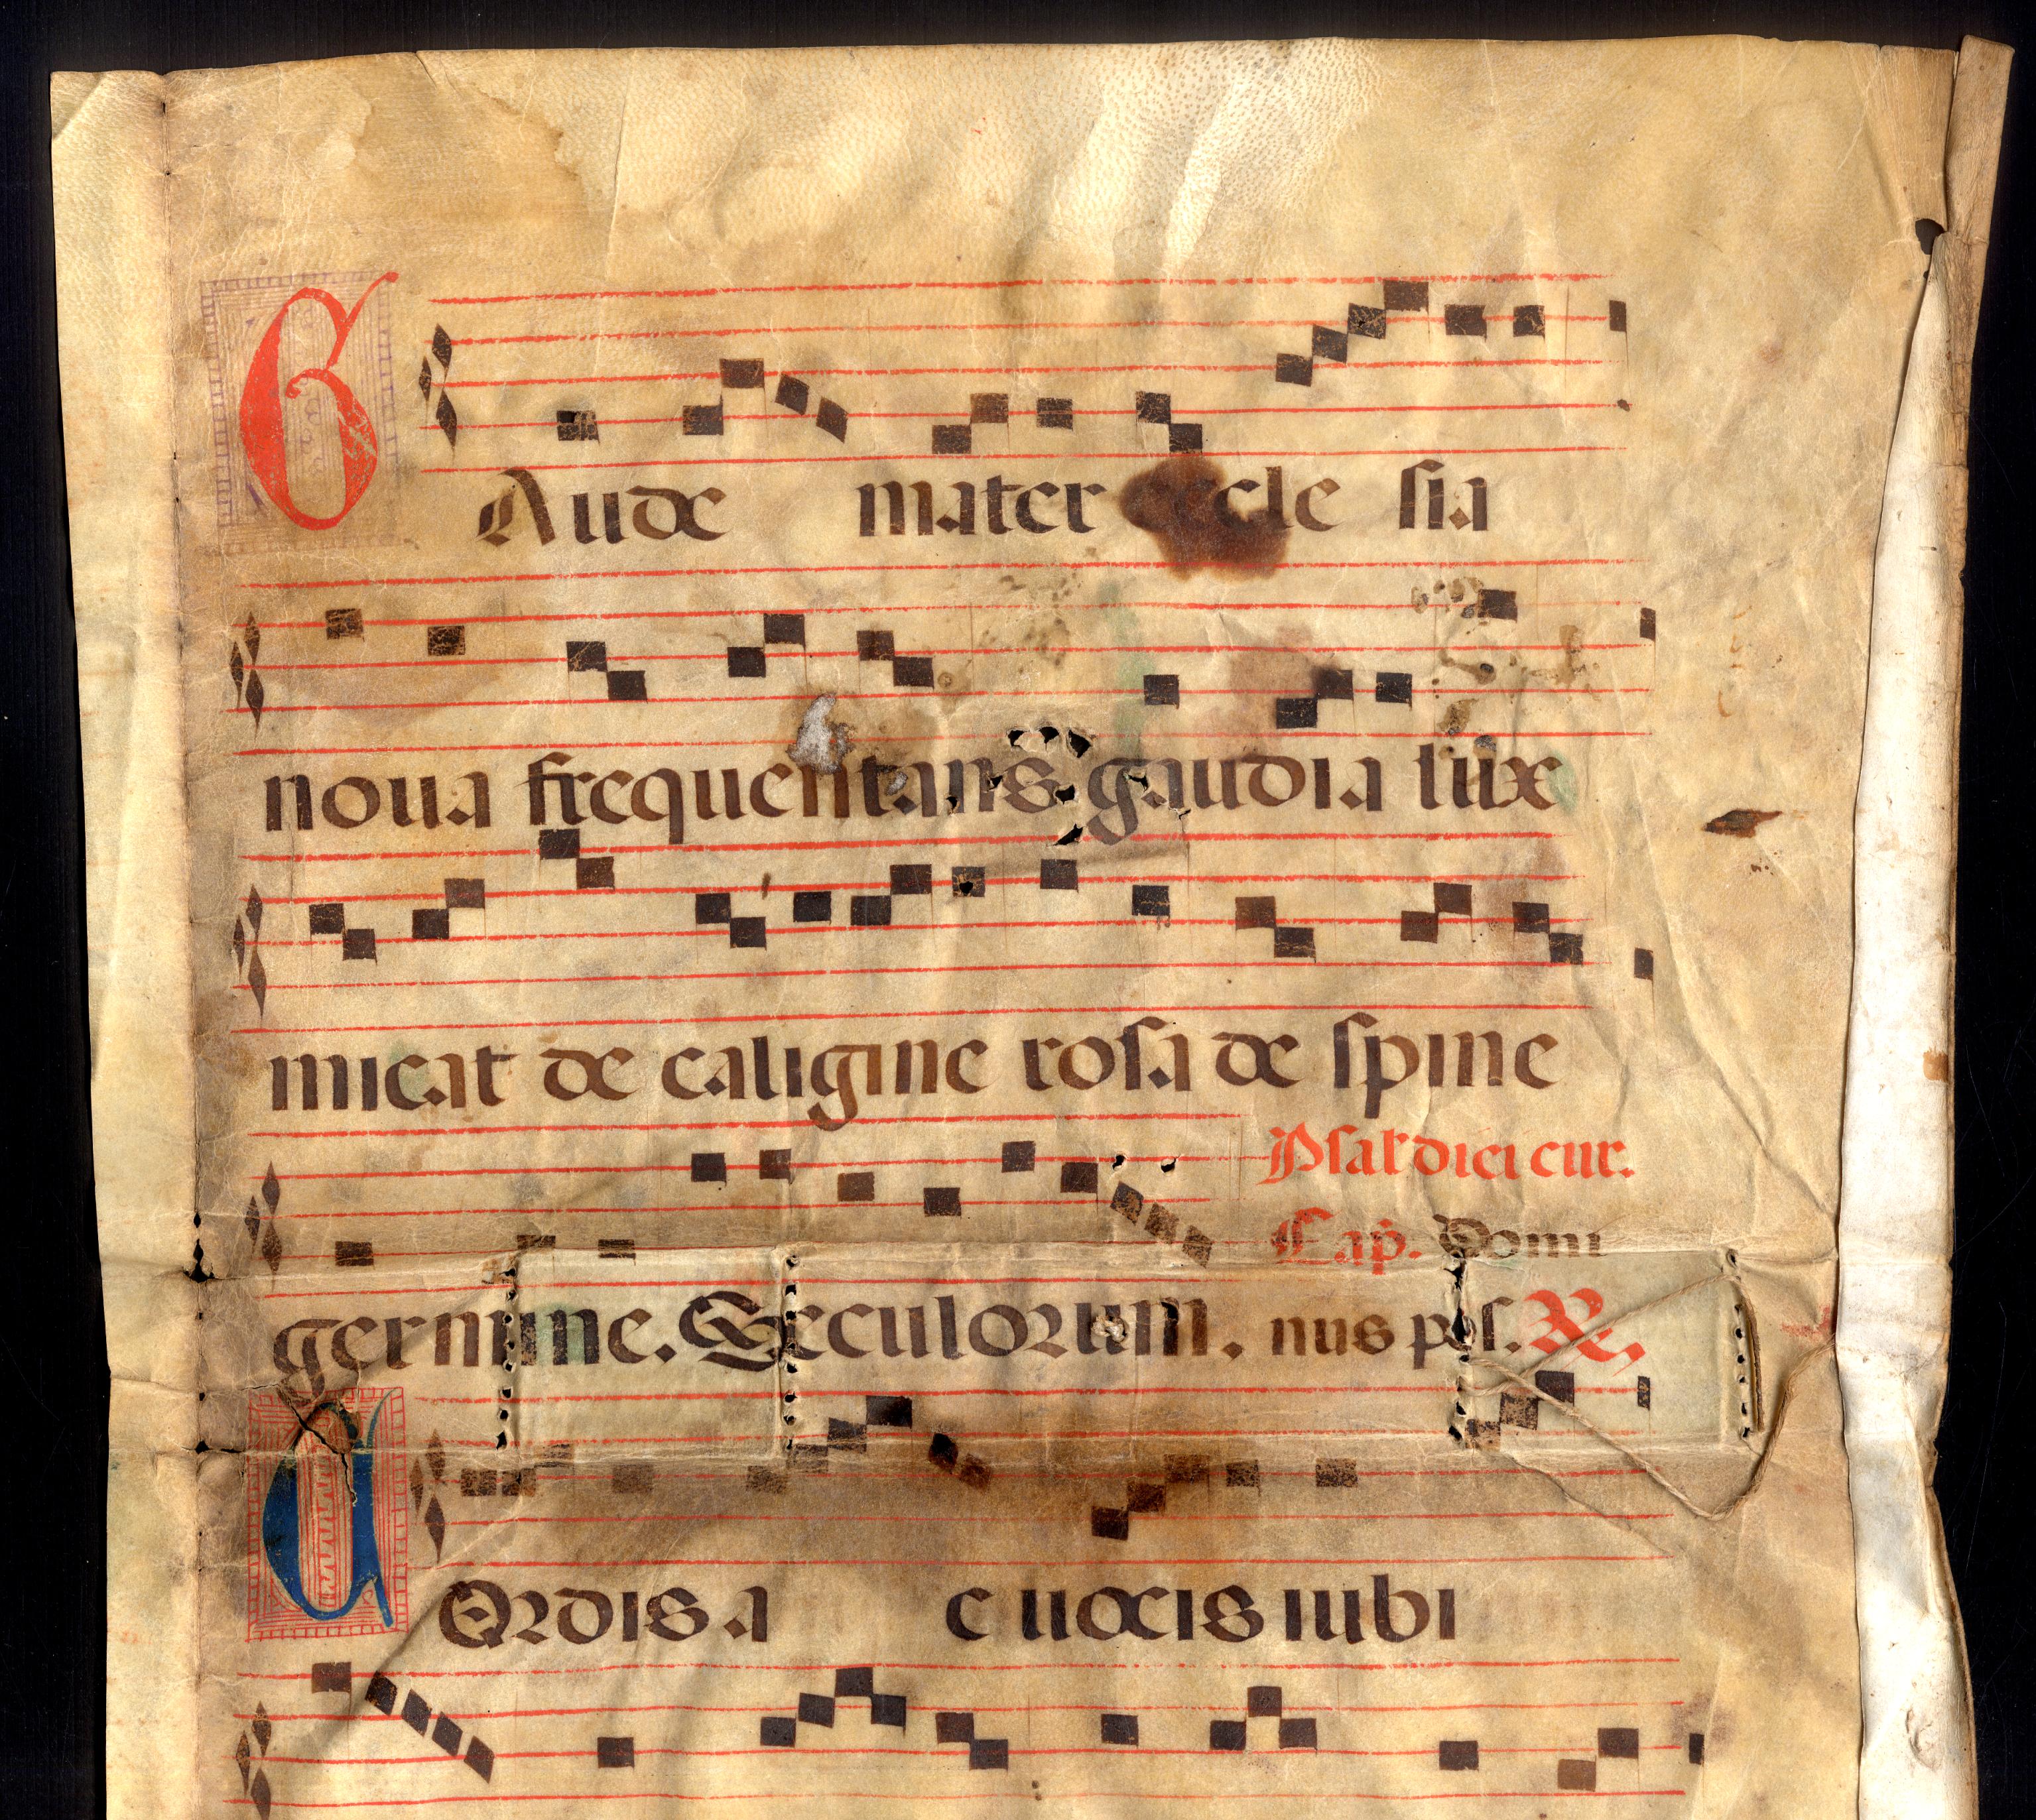 GAude mater eccle sia
noua frequentans gaudia lux
micat de caligine rosa de spine
Psal. dici cur.
Cap. Domi
germine. Seculorum. nus pos. R.
COrdis a c uocis iubi